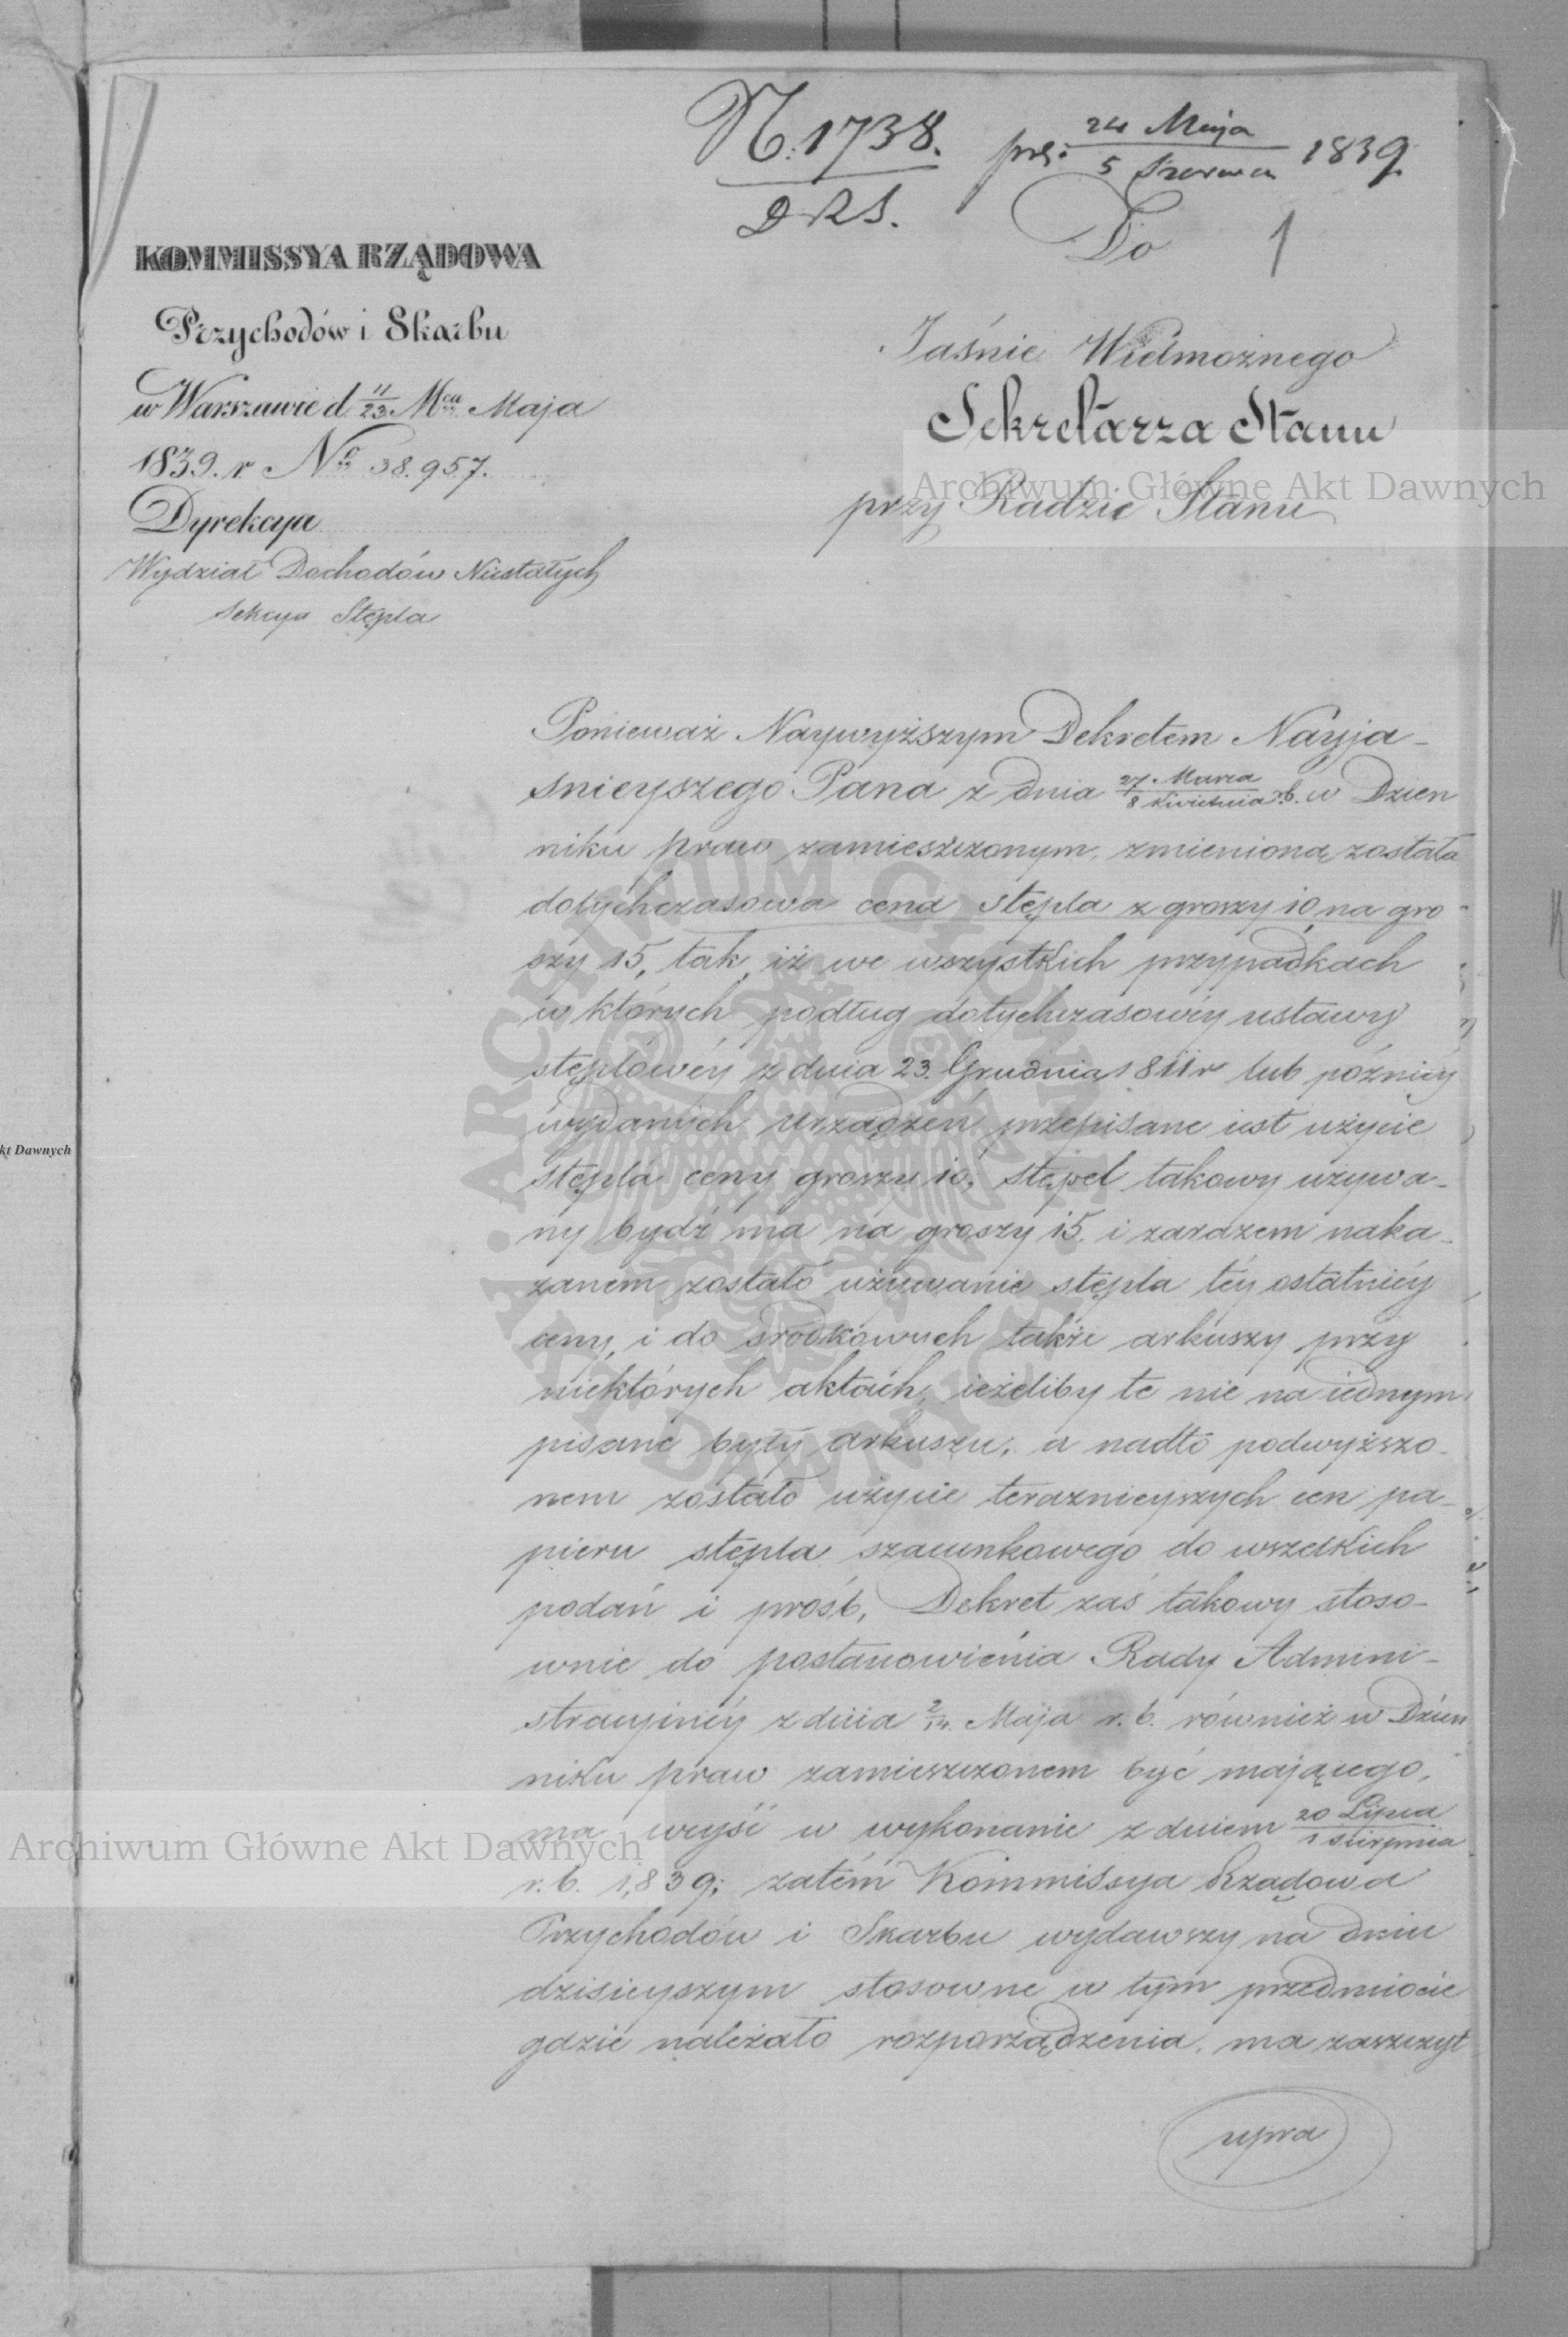 N. 1738.
D. R. S.
prs: 24 Maja / 5 Czerwca 1839.
Do
1
KOMMISSYA RZĄDOWA
Przychodów i Skarbu
w Warszawie d. 11/23. Mca Maja
1839. r. No 38.957.
Dyrekcya
Wydział Dochodów Niestałych
Sekcya Stępla
Jaśnie Wielmożnego
Sekretarza Stanu
przy Radzie Stanu
Ponieważ Naywyższym Dekretem Nayja-
śnieyszego Pana z dnia 27. Marca / 8 Kwietnia r.b. w Dzien
niku praw zamieszczonym, zmienioną została
dotychczasowa cena stępla z groszy 10, na gro-
szy 15, tak, iż we wszystkich przypadkach
w których podług dotychczasowéy ustawy
stęplowéy z dnia 23. Grudnia 1811 r lub późniéy
wydanych urządzeń przepisane iest użycie
stępla ceny groszy 10, stępel takowy używa-
ny bydź ma na groszy 15. i zarazem naka-
zanem zostało używanie stępla téy ostatniéy
ceny, i do środkowych także arkuszy przy
niektórych aktach, ieżeliby te nie na iednym
pisane były arkuszu, a nadto podwyższo-
nem zostało użycie teraznieyszych cen pa-
pieru stępla szacunkowego do wszelkich
podań i próśb, Dekret zaś takowy stoso-
wnie do postanowienia Rady Admini-
stracyinéy z dnia 2/14. Maja r. b. również w Dzien
niku praw zamieszczonem być mającego,
ma wejść w wykonanie z dniem 20 Lipca / 1 Sierpnia
r. b. 1839; zatém Kommissya Rządowa
Przychodów i Skarbu wydawszy na dniu
dzisieyszym stosowne w tym przedmiocie
gdzie należało rozporządzenia, ma zaszczyt
upra
Archiwum Główne Akt Dawnych
kt Dawnych
ARCHIWUM GŁÓWNE
AKT DAWNYCH
Archiwum Główne Akt Dawnych